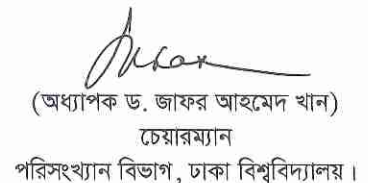 (অধ্যাপক ড. জাফর আহমেদ খান)
চেয়ারম্যান
পরিসংখ্যান বিভাগ, ঢাকা বিশ্ববিদ্যালয়।